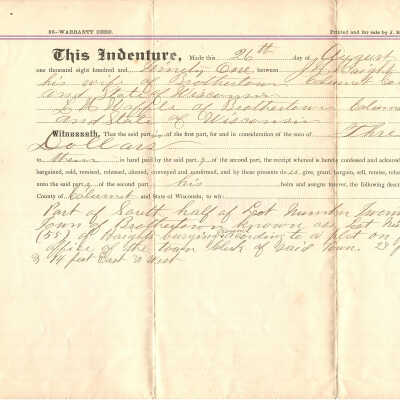 36-WARRANTY DEED.
Printed and for sale by J.
This Indenture, Made this 26th day of August
one thousand eight hundred and Ninety One between
his wife of Brothertown Calumet
and State of Wisconsin
of Brothertown
and State of Wisconsin
Witnesseth, That the said part of the first part, for and in consideration of the sum of Thre
Dollars
to them in hand paid by the said part y of the second part, the receipt whereof is hereby confessed and acknowled
bargained, sold, remised, released, aliened, conveyed and confirmed, and by these presents do give, grant, bargain, sell, remise, releas
unto the said part y of the second part his heirs and assigns forever, the following descri
County of Calumet and State of Wisconsin, to wit:
Part of South half of Lot Number Twen
Town of Brothertown known as Lot
(58) of according to a plat on
office of the town clerk of said town.
14 feet East & West